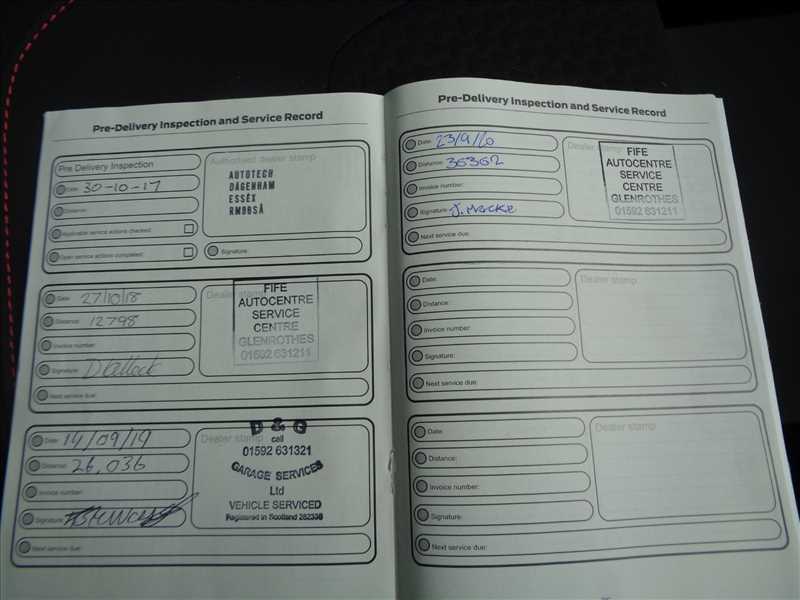 Pre-Delivery Inspection and Service Record
Pre Delivery Inspection
Date: 30-10-17
Distance:
Applicable service actions checked:
Open service actions completed:
Authorised dealer stamp
AUTOTECH
DAGENHAM
ESSEX
RM96SA
Signature:
Date: 27/10/18
Distance: 12798
Invoice number:
Signature:
Next service due:
Dealer stamp
FIFE
AUTOCENTRE
SERVICE
CENTRE
GLENROTHES
01592 631211
Date: 14/09/19
Distance: 26,036
Invoice number:
Signature:
Next service due:
Dealer stamp
D & G
call
01592 631321
GARAGE SERVICES
Ltd
VEHICLE SERVICED
Registered in Scotland 282336
Pre-Delivery Inspection and Service Record
Date: 23/9/20
Distance: 36362
Invoice number:
Signature: J. Mackie
Next service due:
Dealer stamp
FIFE
AUTOCENTRE
SERVICE
CENTRE
GLENROTHES
01592 631211
Date:
Distance:
Invoice number:
Signature:
Next service due:
Dealer stamp
Date:
Distance:
Invoice number:
Signature:
Next service due:
Dealer stamp